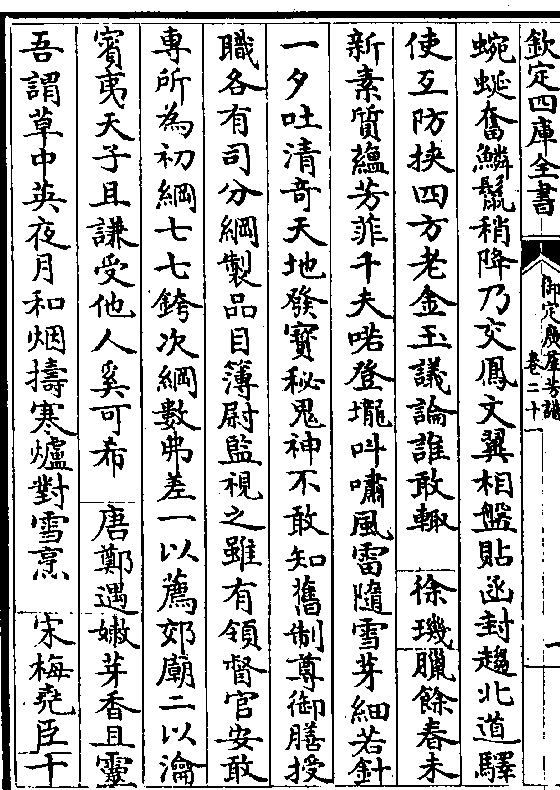 欽定四庫全書
御定廣羣芳譜
卷二十
蜿蜒奮鱗鬣稍降乃交鳳文翼相盤貼函封趨北道驛
使互防挾四方老金玉議論誰敢輙 徐璣臘餘春未
新素質藴芳菲千夫喏登壠叫嘯風雷隨雪芽細若針
一夕吐清奇天地發寶秘鬼神不敢知舊制尊御膳授
職各有司分綱製品目簿尉監視之雖有領督官安敢
專所為初綱七七銙次綱數弗差一以薦郊廟二以瀹
賓夷天子且謙受他人奚可希 唐鄭遇嫩芽香且靈
吾謂草中英夜月和烟擣寒爐對雪烹 宋梅堯臣十